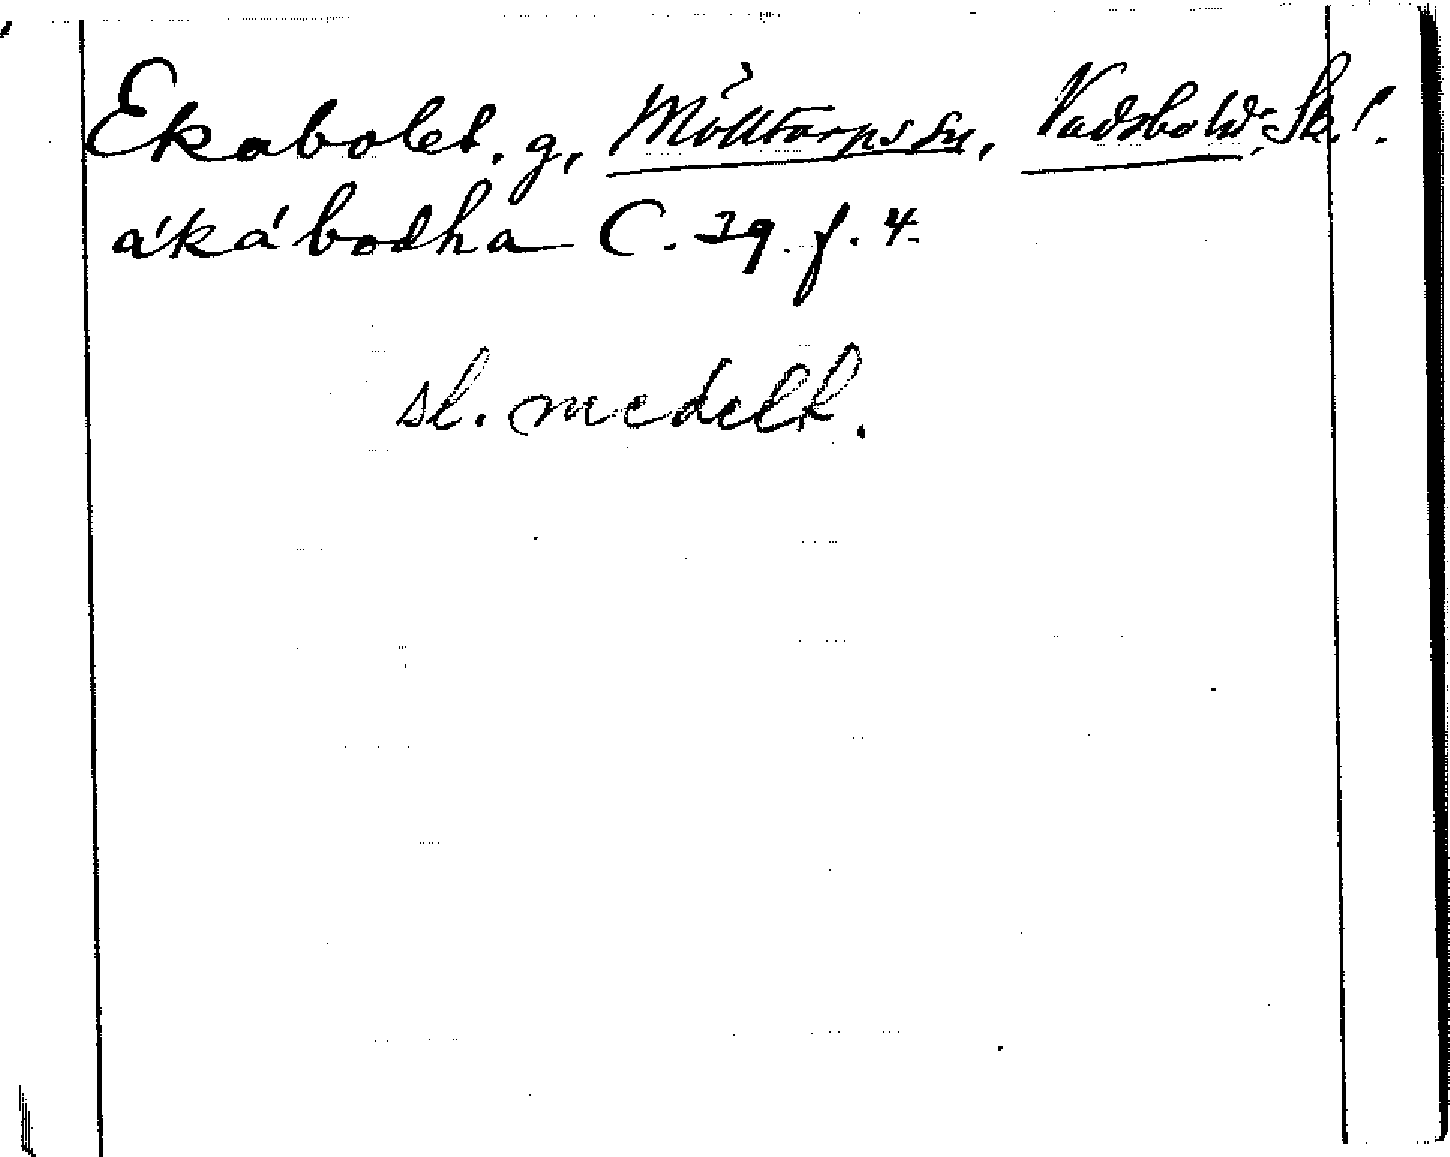 Ekabolet. g, Mölltorps sn, Vadsbo hd. Sk. l.
ákábodha C. 29. f. 4.
sl. medelt.